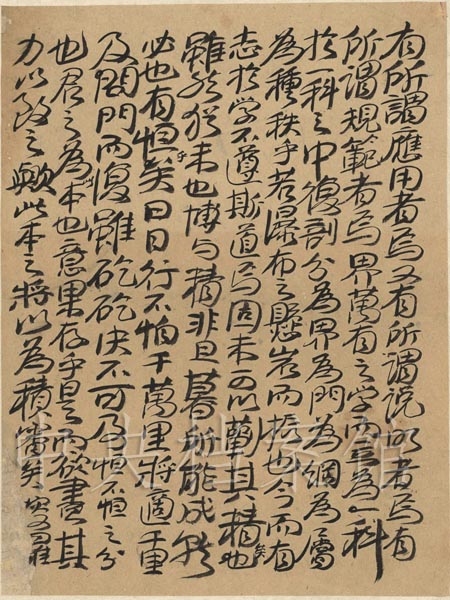 有所謂應用者焉又有所謂說明者焉有
所謂規範者焉界萬有之學而立為一科
於一科之中復剖分為界為門為綱為屬
為種秩乎若瀑布之懸岩而振也今而有
志於學不遵斯道焉固未可以蘄其精也矣
雖然猶未也博與精非旦暮所能成就
必也有恒乎矣日日行不怕千萬里將適千里
及閭門而復雖矻矻決不可及恒不恒之分
也君之為本也意果存乎是而欲盡其
力以致之歟此本之將以為積
中央档案馆